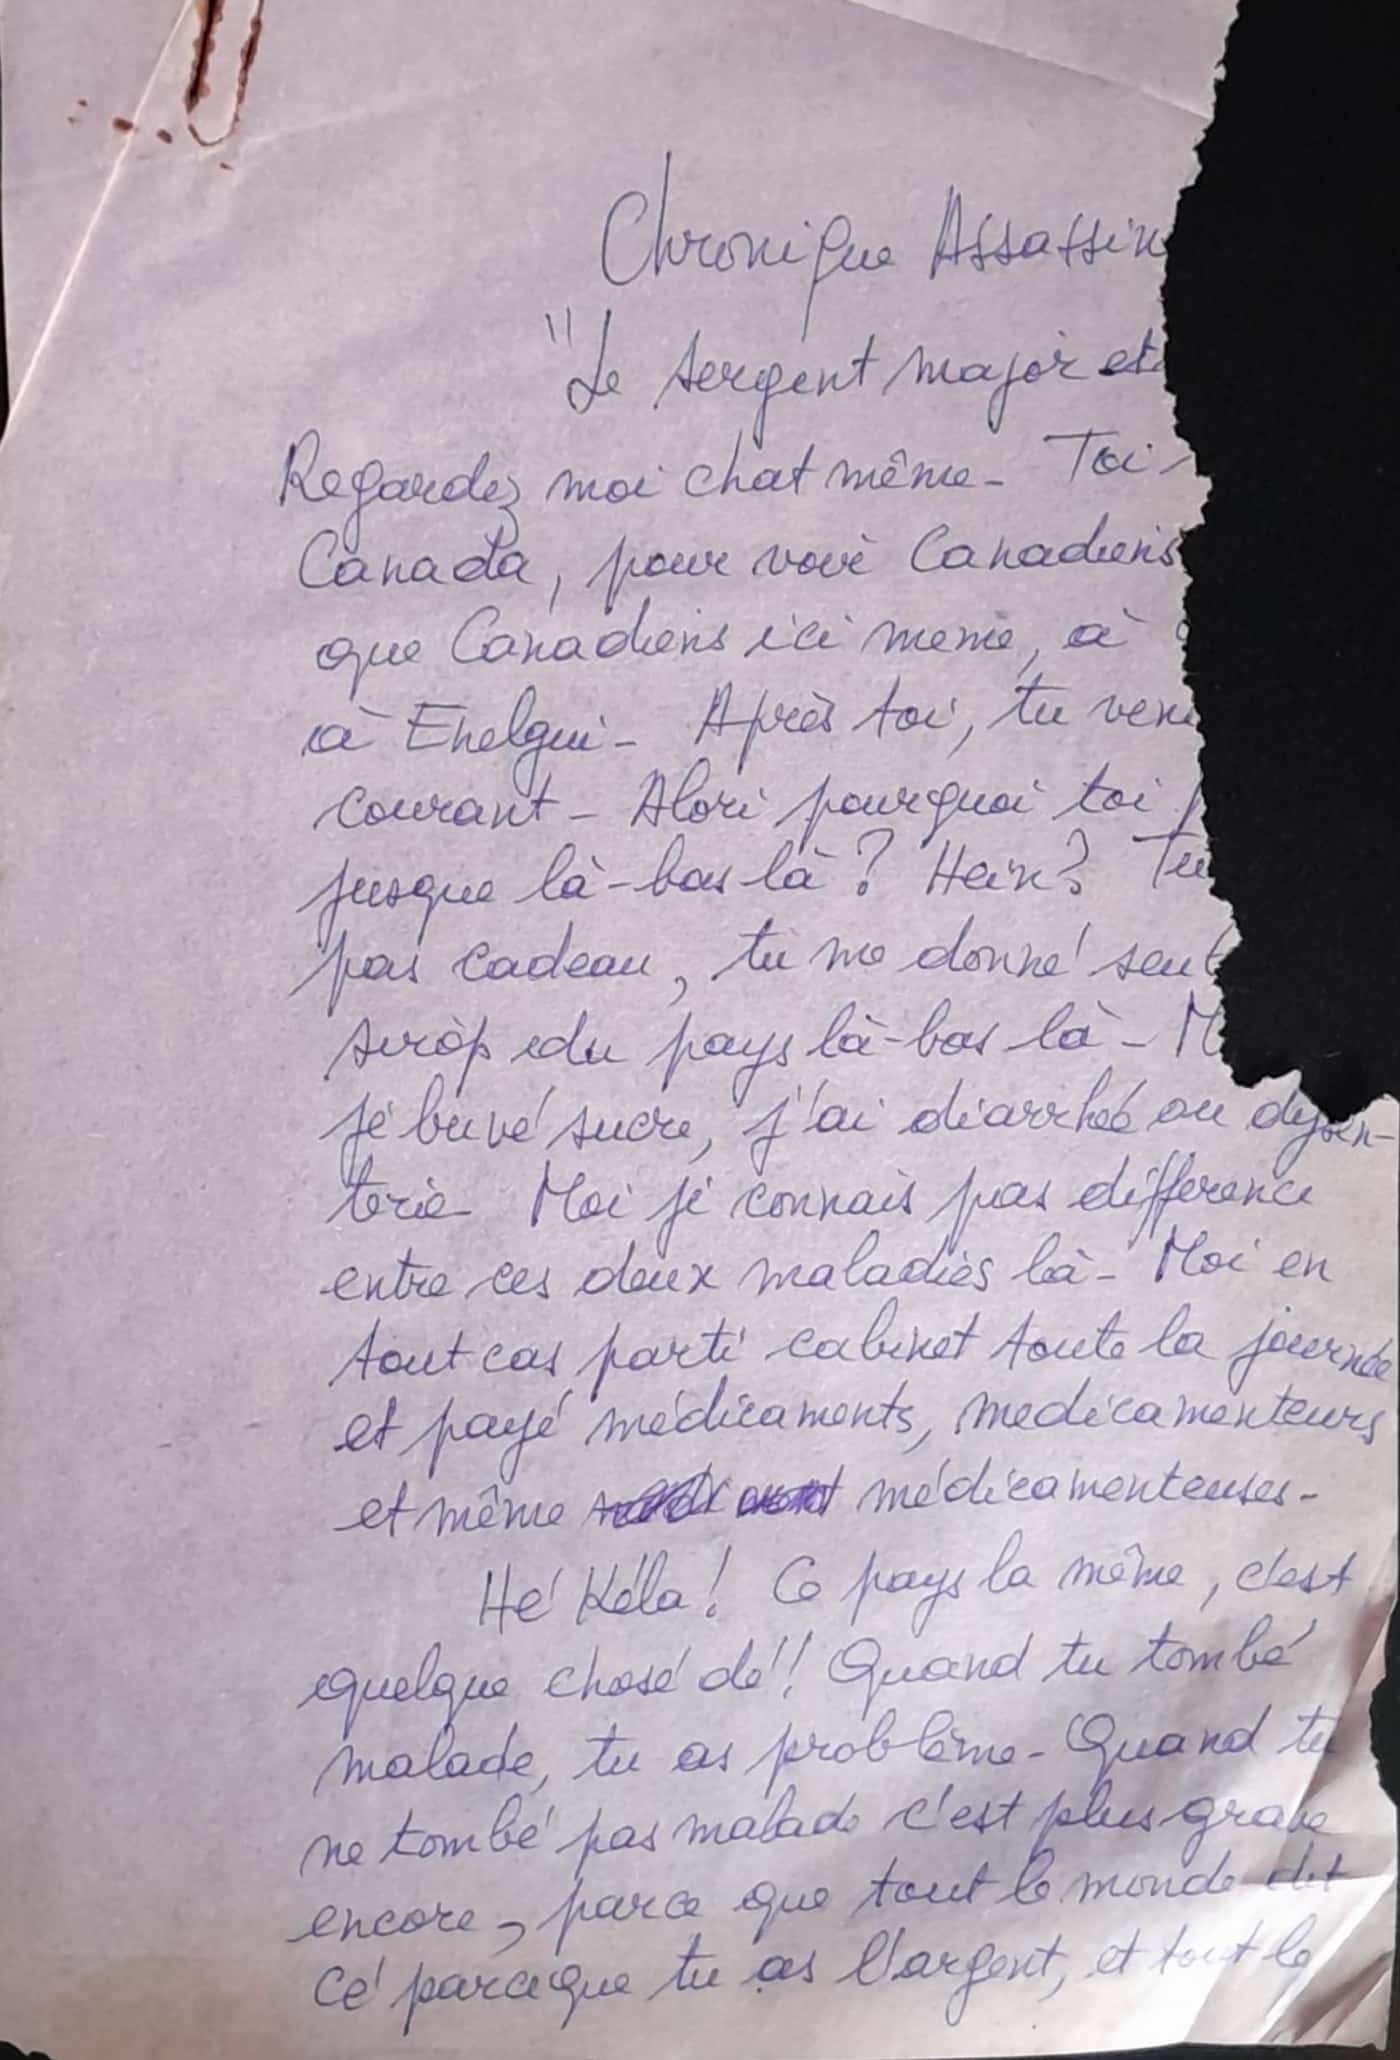 Chronique Assassin
"Le sergent major est
Regardez moi chat même - Toi
Canada, pour voir Canadiens
que Canadiens ici meme, à
à Ehelgui - Après toi, tu
courant - Alori pourquoi toi
jusque là-bas là ? Hein ? Tu
pas cadeau, tu me donné seul
sirop du pays là-bas là -
jé buvé sucre, j'ai diarrhéé ou dysen-
terie Moi jé connais pas difference
entre ces deux maladies là - Moi en
tout cas parti cabinet toute la journée
et payé médicaments, medicamenteurs
et même médicamenteuses -
Hé Kéla ! Ce pays la même, c'est
quelque chosé dé !! Quand tu tombé
malade, tu as problème - Quand tu
ne tombé pas malade c'est plus grave
encore, parce que tout le monde dit
cé parceque tu as l'argent, et tout le